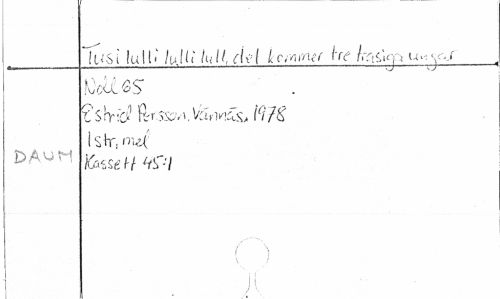 Tusi lulli lulli lull, det kommer tre trasiga ungar
Noll 65
Estrid Persson, Vännäs, 1978
1 str, mel
DAUM Kassett 45:1